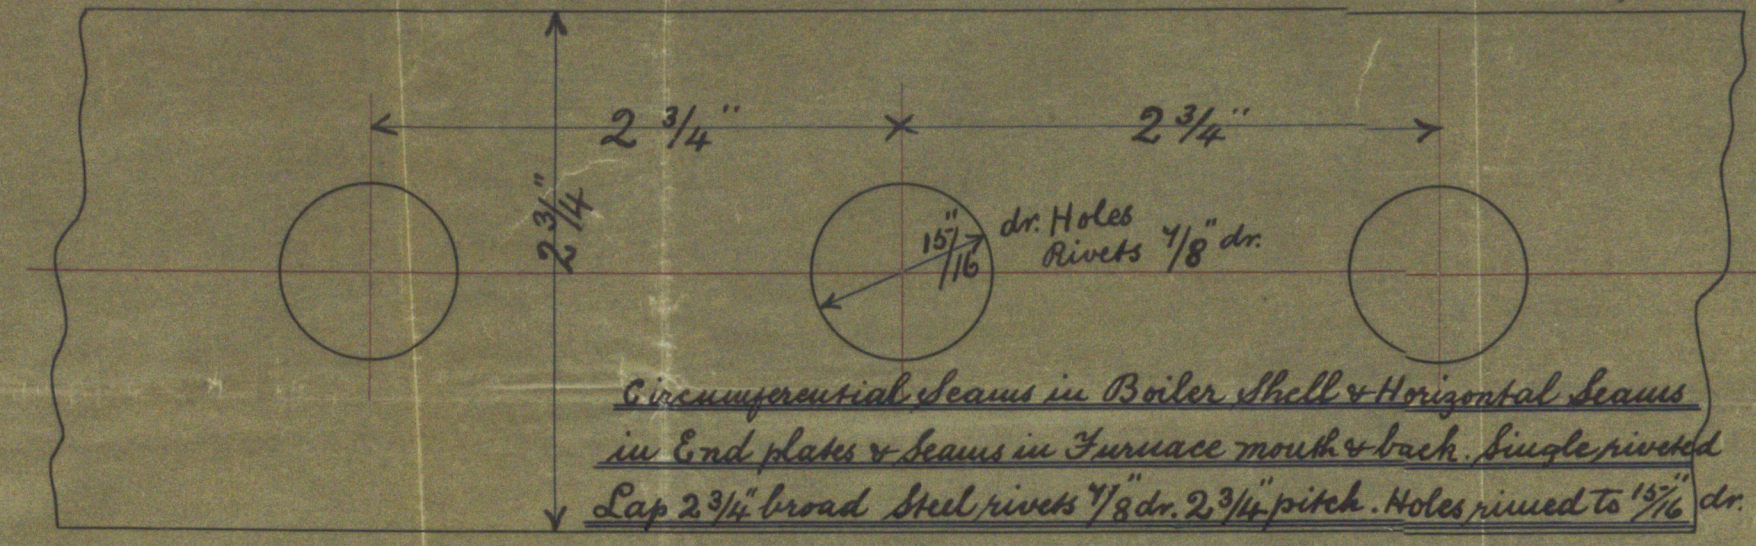 2 3/4"
2 3/4"
2 3/4"
15/16" dr. Holes
Rivets 7/8" dr.
Circumferential Seams in Boiler Shell & Horizontal Seams
in End plates & Seams in Furnace mouth & back. Single riveted
Lap 2 3/4" broad Steel rivets 7/8" dr. 2 3/4" pitch. Holes rimed to 15/16" dr.